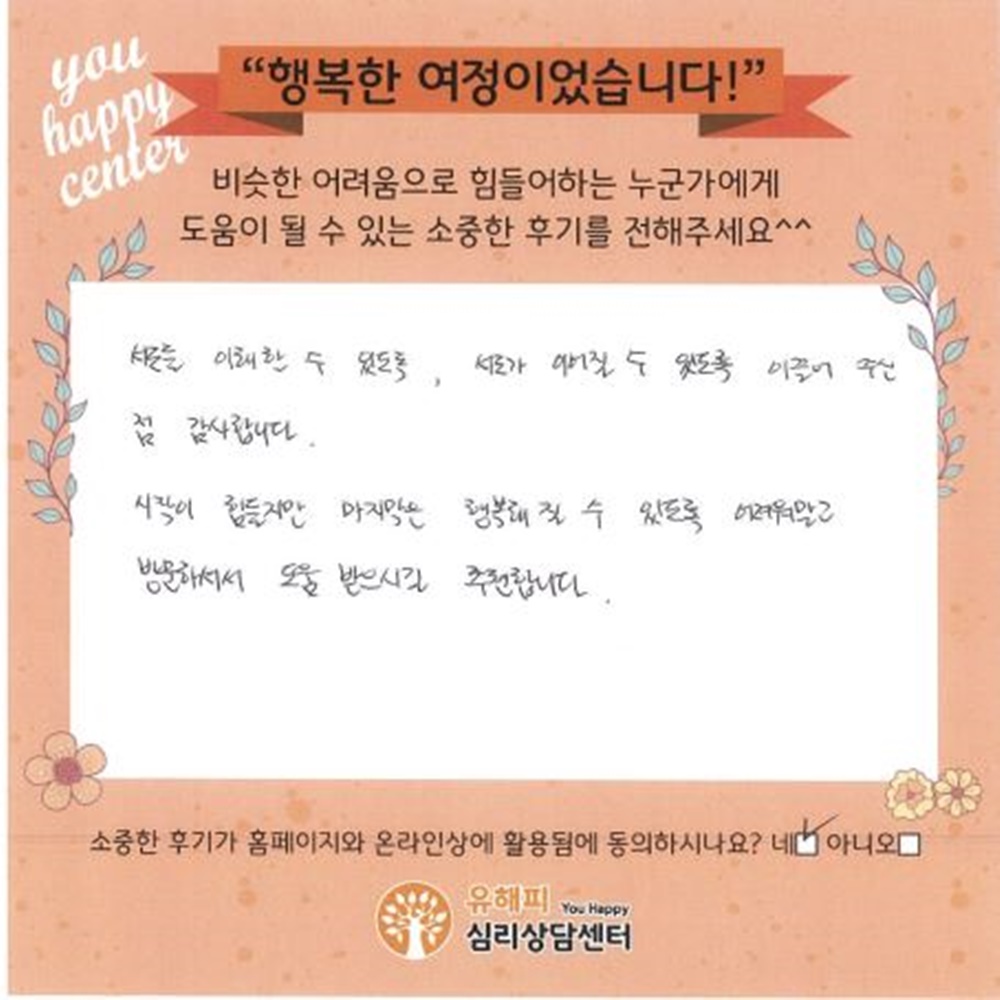 you
happy
center
“행복한 여정이었습니다!”
비슷한 어려움으로 힘들어하는 누군가에게
도움이 될 수 있는 소중한 후기를 전해주세요^^
서로를 이해할 수 있도록, 서로가 이어질 수 있도록 이끌어 주신
점 감사합니다.
시작이 힘들지만 마지막은 행복해질 수 있도록 어려워말고
방문하셔서 도움 받으시길 추천합니다.
소중한 후기가 홈페이지와 온라인상에 활용됨에 동의하시나요? 네 아니오
유해피 You Happy
심리상담센터